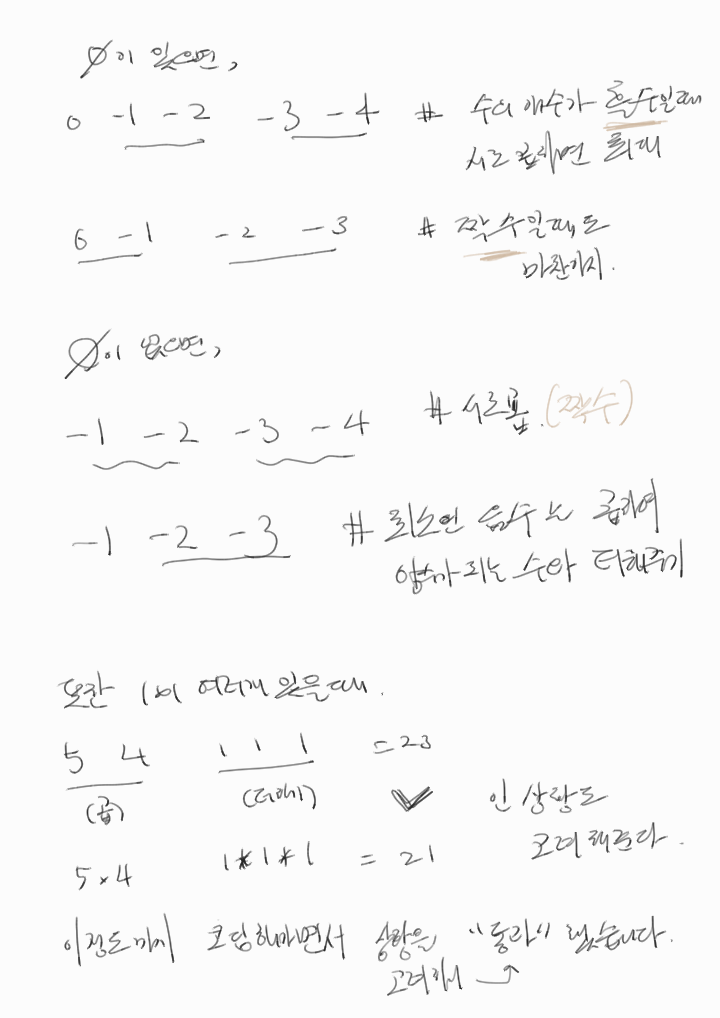 0이 있으면,
0 -1 -2 -3 -4 # 수의 개수가 홀수일때
서로 곱하면 최대
0 -1 -2 -3 # 짝수일때도
마찬가지.
0이 없으면,
-1 -2 -3 -4 # 서로 곱. (짝수)
-1 -2 -3 # 최소인 음수는 곱하여
양수가 되는 수와 더해주기
또한 1이 여러개 있을때.
5 4 1 1 1 = 23
(곱) (더하기) 인 상황도
고려해준다.
5×4 1*1*1 = 21
이정도까지 코딩해가면서 상황을 "통과" 했습니다.
고려해서